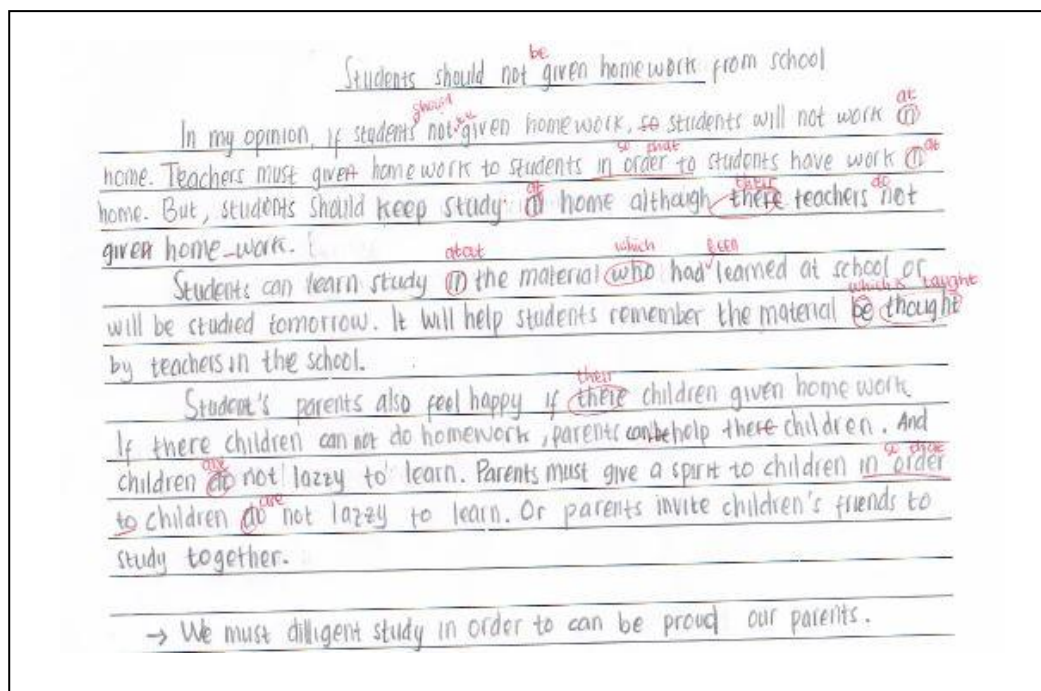 be
Students should not given homework from school
should at
In my opinion, if students not given homework, so students will not work in
so that at
home. Teachers must given homework to students in order to students have work in
at their do
home. But, students should keep study in home although there teachers not
given home-work.
about which been
Students can learn study in the material who had learned at school or
which is taught
will be studied tomorrow. It will help students remember the material be thought
by teachers in the school.
their
Student's parents also feel happy if there children given home work.
If there children can not do homework, parents can help there children. And
are so that
children do not lazzy to learn. Parents must give a spirit to children in order
are
to children do not lazzy to learn. Or parents invite children's friends to
study together.
→ We must dilligent study in order to can be proud our parents.